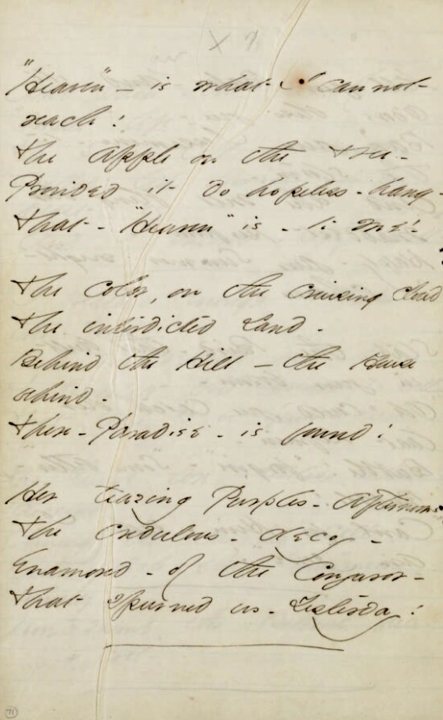 X
"Heaven" - is what I cannot -
reach!
The Apple on the Tree -
Provided it do hopeless - hang
That - "Heaven" is - to me!
The Color, on the cruising cloud
The interdicted Land -
Behind the Hill - the House
behind -
There - Paradise - is found!
Her teazing Purples - Afternoons
The credulous - decoy -
Enamored - of the Conjuror -
That spurned us - Yesterday!